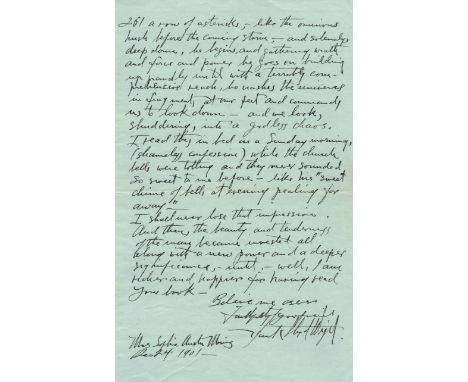 261 a row of asterisks, - like the ominous
hush before the coming storm - and solemnly
deep down, he begins, and gathering wrath
and force and power he goes on building
up grandly until with a terribly com-
prehensive reach, he crashes the universe
in fragments at our feet and commands
us to look down - and we look,
shuddering, into a godless chaos.
I read this in bed on a Sunday morning,
(shameless confession) while the church
bells were tolling and they never sounded
so sweet to me before - like his "sweet
chime of bells at evening pealing far
away" -
I shall never lose that impression.
And then, the beauty and tenderness
of the man became invested all
along with a new power and a deeper
significance, - until, - well, I am
richer and happier for having read
your book -
Believe me ever
Faithfully yours
Frank Lloyd Wright.
Mrs
Dec 4 1901 -